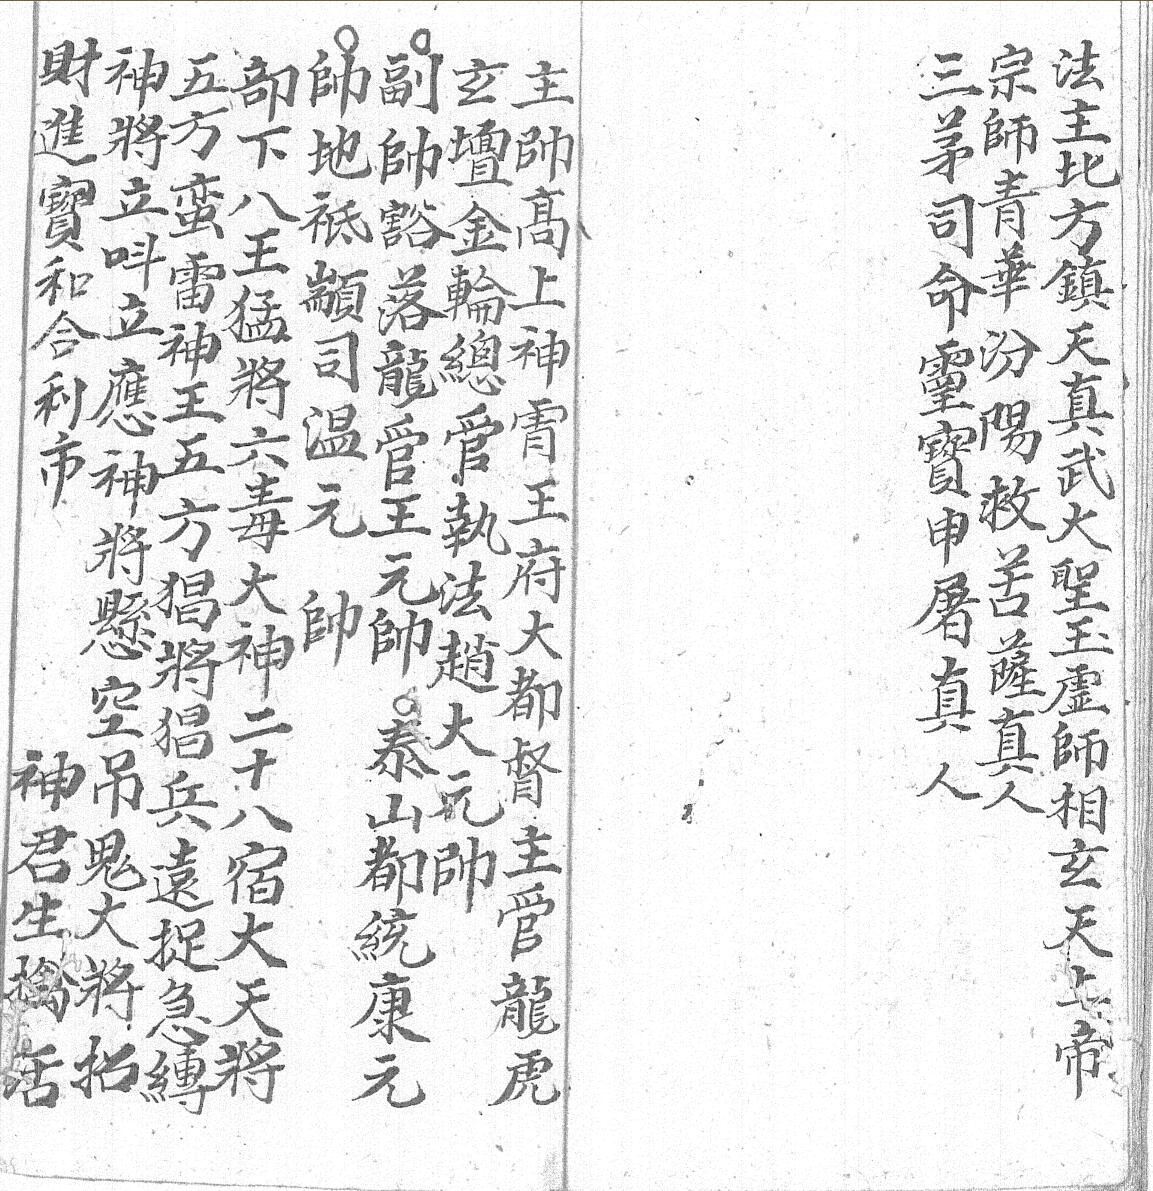 法主北方鎮天真武大聖玉虛師相玄天上帝
宗師青華汾陽救苦薩真人
三茅司命靈寶申屠真人
主帥髙上神霄王府大都督主管龍虎
玄壇金輪總管執法趙大元帥
副帥豁落龍管王元帥 泰山都統康元
帥地祇顓司温元帥
部下八王猛將六毒大神二十八宿大天將
五方蛮雷神王五方猖將猖兵遠捉急縛
神將立呌立應神將懸空吊鬼大將招
財進寶和合利市
神君生擒活